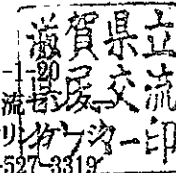 滋賀県立
-1-20
流 県民交流
リ センター印
-527-3319